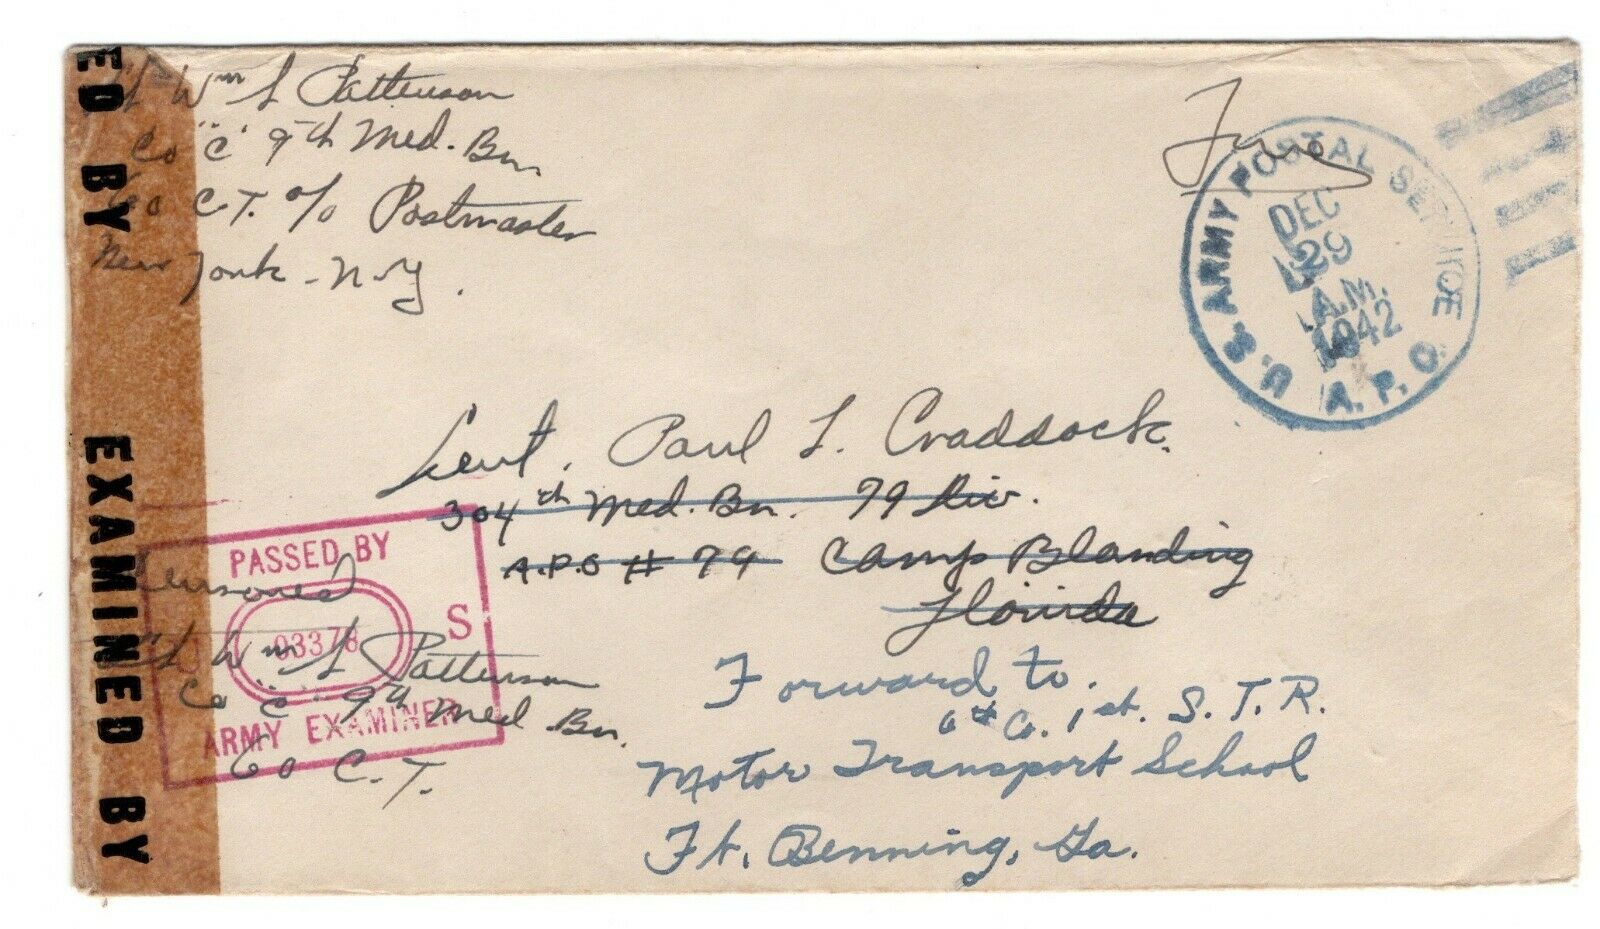 Lt Wm L Patterson
Co "C" 9th Med. Bn
60 C.T. c/o Postmaster
New York - N-Y.
Free
U.S. ARMY POSTAL SERVICE
DEC
29
A.M.
1942
A.P.O.
Lieut. Paul L. Craddock.
304th Med. Bn. 79 Div.
A.P.O # 79 Camp Blanding
Florida
Forward to.
6th Co. 1st. S.T.R.
Motor Transport School
Ft. Benning, Ga.
PASSED BY
S
03378
ARMY EXAMINER
Censored
Lt Wm L Patterson
Co "C" 9th Med. Bn.
60 C.T.
ED BY
EXAMINED BY